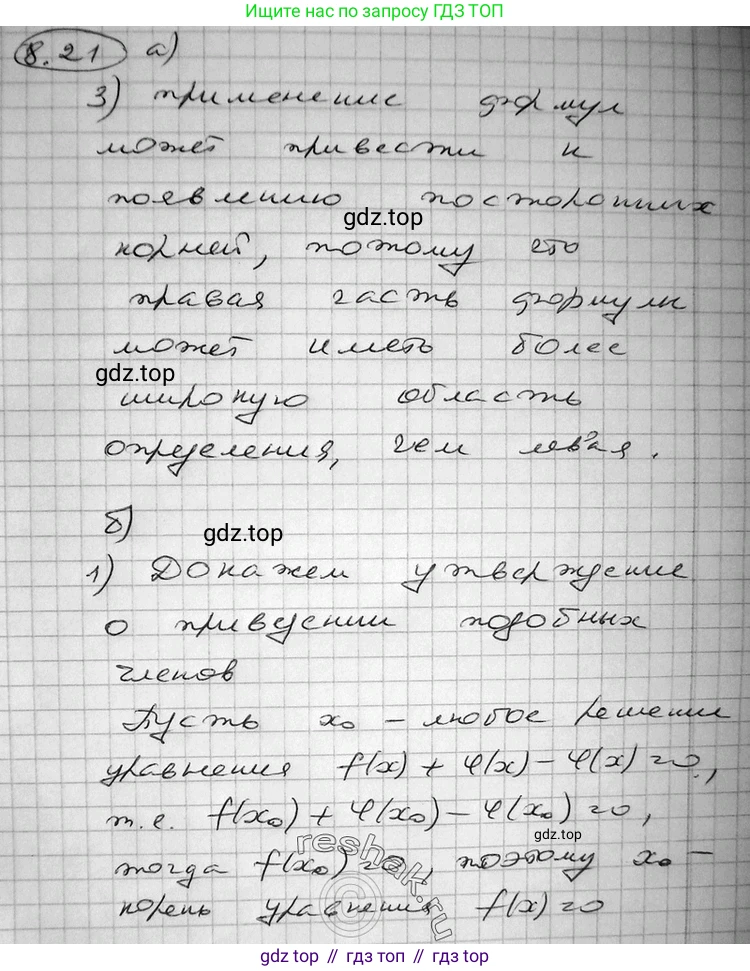 Ищите нас по запросу ГДЗ ТОП
8.21 а)
3) применение формул
может привести к
появлению посторонних
gdz.top
корней, потому что
правая часть формулы
может иметь более
gdz.top
широкую область
определения, чем левая.
б)
gdz.top
1) Докажем утверждение
о приведении подобных
членов
Пусть x₀ – любое решение
уравнения f(x) + φ(x) – φ(x) = 0,
т.е. f(x₀) + φ(x₀) – φ(x₀) = 0,
gdz.top
тогда f(x₀) = 0, поэтому x₀ –
reshak.ru
корень уравнения f(x) = 0
gdz.top // gdz.top // gdz.top // gdz.top